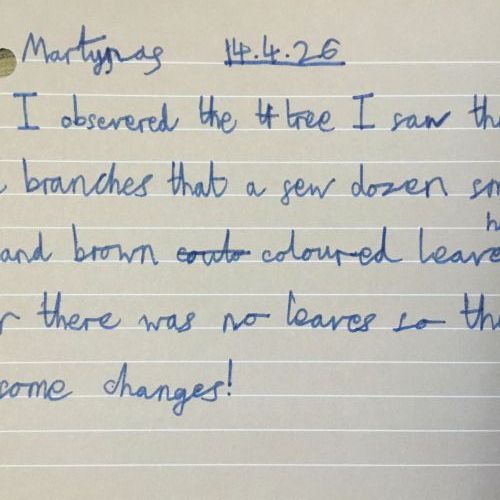 Martynas 14.4.26
I obsevered the tree I saw th
branches that a sew dozen sm
and brown coloured leave
h
r there was no leaves so th
some changes!